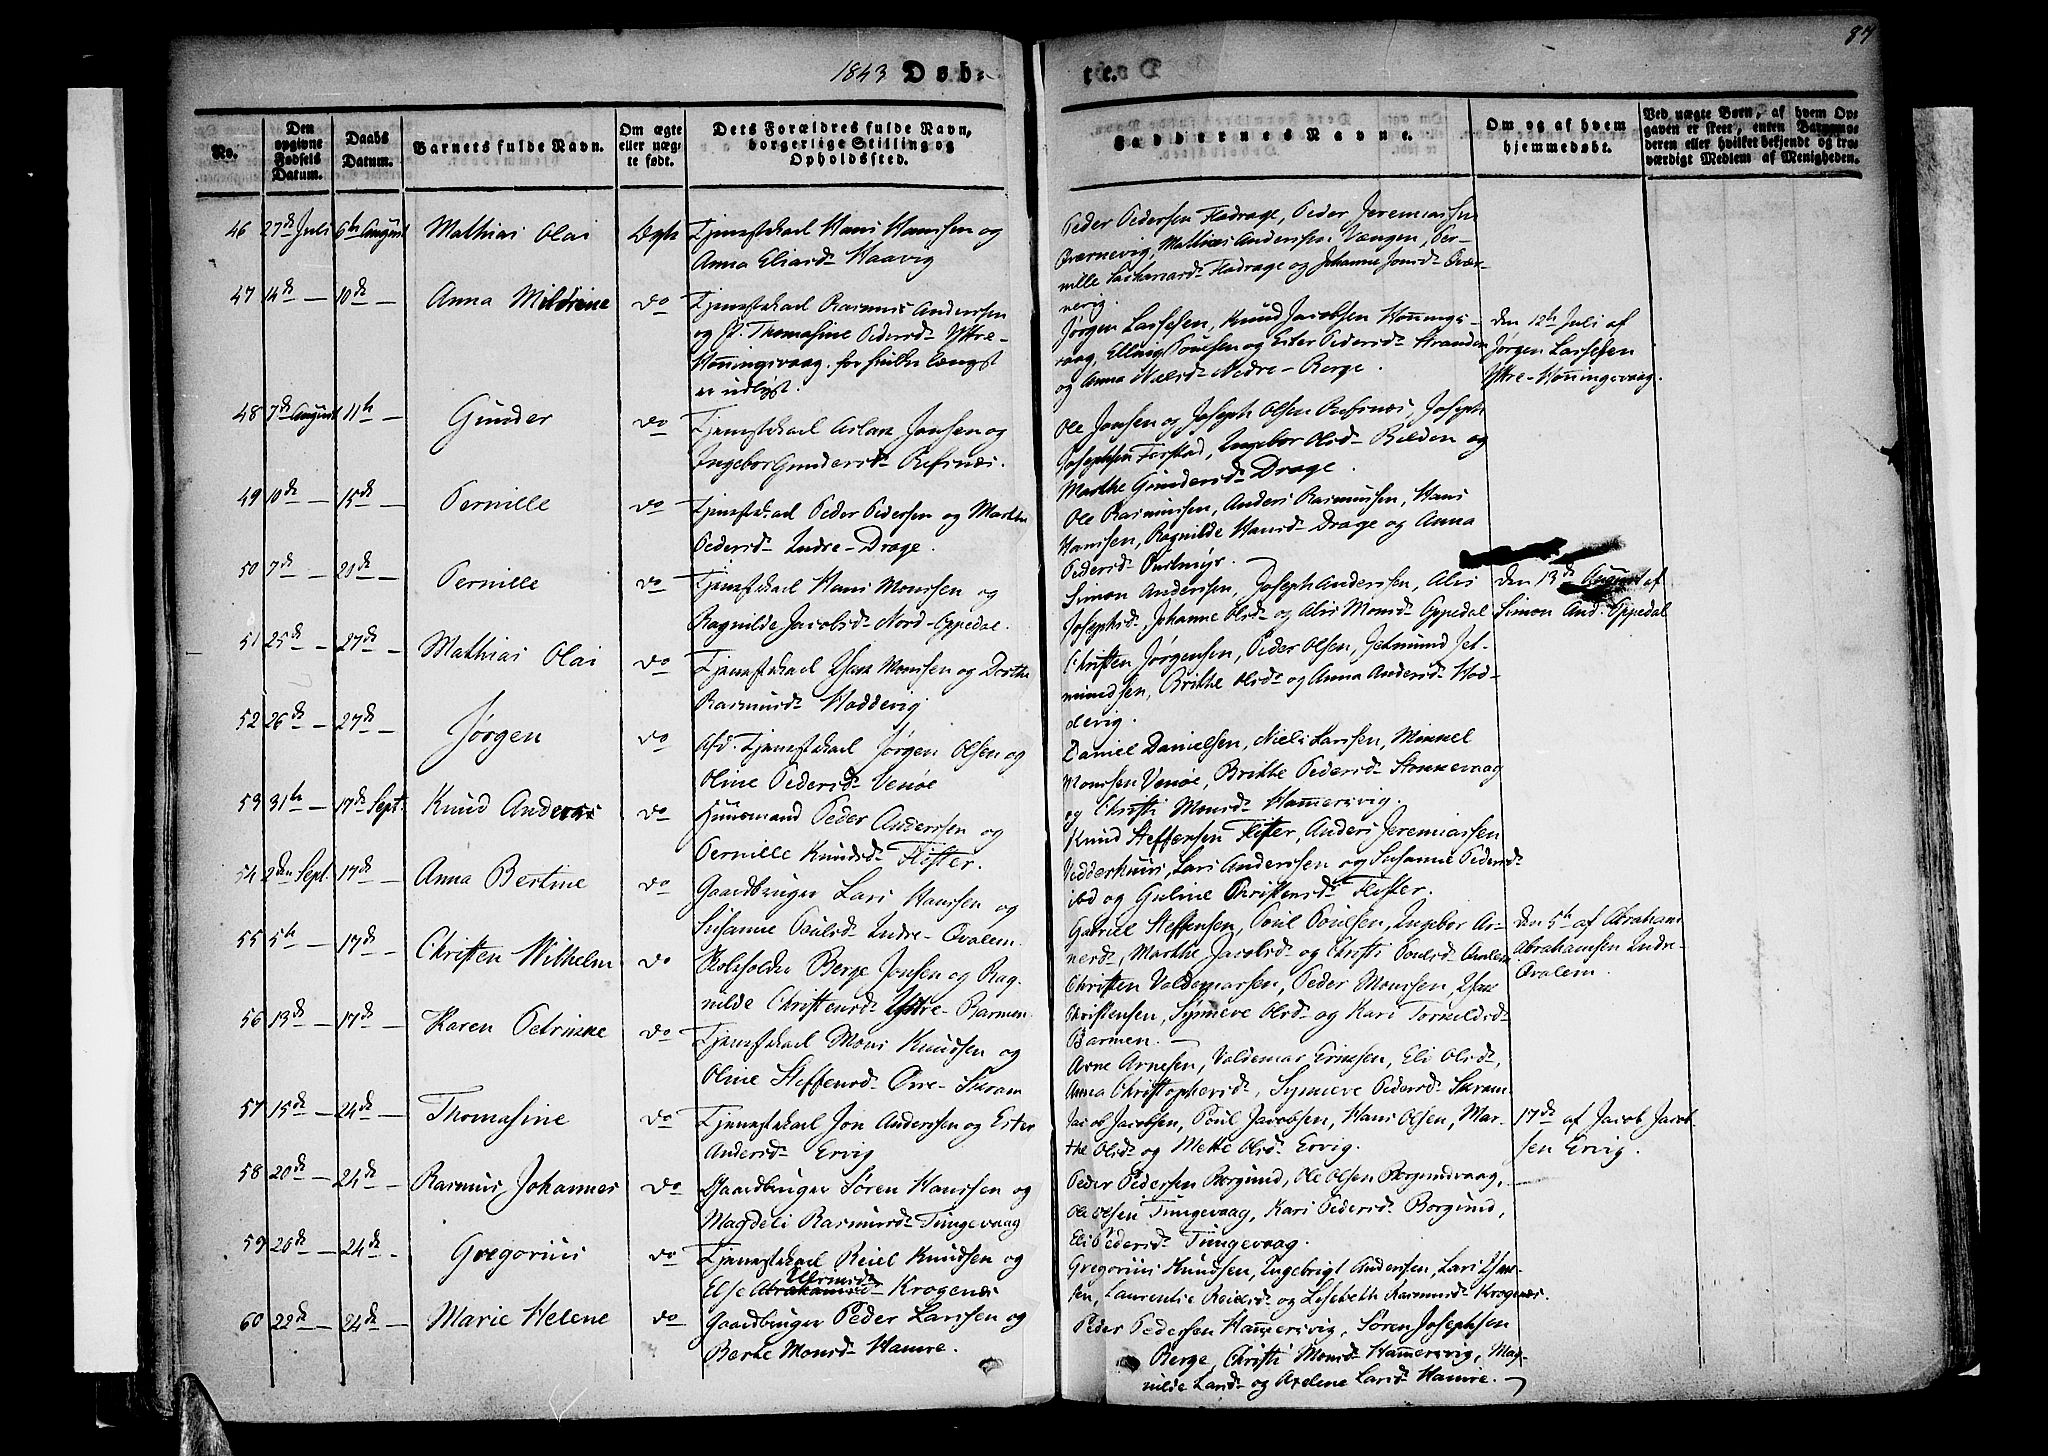 87
1843 Døbte.
No.
Den opgivne Fødsels Datum.
Daabs Datum.
Barnets fulde Navn.
Om ægte eller uægte født.
Dets Forældres fulde Navn, borgerlige Stilling og Opholdssted.
Faddernes Navne.
Om og af hvem hjemmedøbt.
Ved uægte Børn, af hvem Opgaven er skeet, enten Barnemoderen eller hvilket bekjendt og troværdigt Medlem af Menigheden.
46 27de Juli 6te August Mathias Olai Ægte Tjenestekarl Hans Hanssen og
Anna Eliasd. Haavig
Peder Pedersen Fladrage, Peder Jeremiassen
Qværnevig, Mathias Anderssen Vængen, Per-
nille Zachariasd. Fladrage og Johanne Jonsd. Qvær-
nevig.
47 14de — 10de Anna Mildrine do Tjenestekarl Rasmus Anderssen
og P. Thomasine Pedersd. Yttre-
Honningsvaag, for hvilke længst
er udlyst.
Jørgen Lassesen, Knud Jacobsen Honnings-
vaag, Elling Poulsen og Ester Pedersd. Stranden
og Anna Nielsd. Nedre-Berge.
Den 12te Juli af
Jørgen Lassesen
Yttre-Honningsvaag.
48 7de August 11te — Gunder do Tjenestekarl Aslak Jonsen og
Ingebor Gundersd. Refsnæs.
Ole Jonsen og Joseph Olsen Refsnæs, Joseph
Josephsen Forstad, Ingebor Olsd. Belden og
Marthe Gundersd. Drage.
49 10de — 15de — Pernille do Tjenestekarl Peder Pedersen og Marthe
Pedersd. Indre-Drage.
Ole Rasmussen, Anders Rasmussen, Hans
Hanssen, Ragnilde Hansd. Drage og Anna
Pedersd.
50 7de — 21de — Pernille do Tjenestekarl Hans Monssen og
Ragnilde Jacobsd. Nord-Oppedal.
Simon Anderssen, Joseph Anderssen, Alis
Josephsd., Johanne Olsd. og Alis Monsd. Oppedal
Den 13de August af
Simon And. Oppedal
51 25de 27de — Mathias Olai do Tjenestekarl Isak Monssen og Dorthe
Rasmusd. Hoddevig
Christen Jørgensen, Peder Olsen, Jetmund Jet-
mundsen, Brithe Olsd. og Anna Andersd. Hod-
devig.
52 26de — 27de — Jørgen do Afd. Tjenestekarl Jørgen Olsen og
Oline Pedersd. Venøe
Daniel Danielsen, Niels Larssen, Monsel
Monssen Venøe, Brithe Pedersd. Stonnevaag
og Christi Monsd. Hammersvig.
53 31te — 17de Sept. Knud Andreas do Huusmand Peder Anderssen og
Pernille Knudsd. Flister.
Knud Steffensen Flister, Anders Jeremiassen
Vedderhuus, Lars Anderssen og Susanne Pedersd.
ibd og Guline Christensd. Flister.
54 2den Sept. 17de — Anna Bertine do Gaardbruger Lars Hanssen og
Susanne Poulsd. Indre-Qvalem.
Gabriel Steffensen, Poul Poulsen, Ingebor Ar-
nesd., Marthe Jacobsd. og Christi Poulsd. Qvalem
Den 5te af Abraham
Abrahamsen Indre-
Qvalem.
55 5te — 17de Christen Wilhelm do Boleholder Berge Jonsen og Rag-
nilde Christensd. Yttre-Barmen.
Christen Valdemarssen, Peder Monssen, Isak
Christensen, Synneve Olsd. og Kari Tormildsd.
Barmen.
56 13de — 17de — Karen Petrine do Tjenestekarl Mons Knudsen og
Oline Steffensd. Øvre-Skram
Arne Arnesen, Valdemar Erikssen, Eli Olsd.,
Anna Christophersd., Synneve Pedersd. Skram
57 15de — 24de — Thomasine do Tjenestekarl Jon Anderssen og Ester
Andersd. Ervig
Jacob Jacobsen, Poul Jacobsen, Hans Olsen, Mar-
the Olsd. og Mette Olsd. Ervig.
17de af Jacob Jacob-
sen Ervig.
58 20de — 24de — Rasmus Johannes do Gaardbruger Søren Hanssen og
Magdeli Rasmusd. Tungevaag
Peder Pedersen Borgund, Ole Olsen Borgundvaag,
Ole Olsen Tungevaag, Kari Pedersd. Borgund,
Eli Pedersd. Tungevaag.
59 20de — 24de — Gregorius do Tjenestekarl Reiel Knudsen og
Else Abrahamsd. Krogenæs
Gregorius Knudsen, Ingebrigt Anderssen, Lars Isak-
sen, Laurentie Reielsd. og Lisebeth Rasmusd. Krogenæs.
60 22de — 24de — Marie Helene do Gaardbruger Peder Larssen og
Berte Monsd. Hamre.
Peder Pedersen Hammersvig, Søren Josephsen
Berge, Christi Monsd. Hammersvig, Mag-
nilde Larsd. og Axelene Larsd. Hamre.